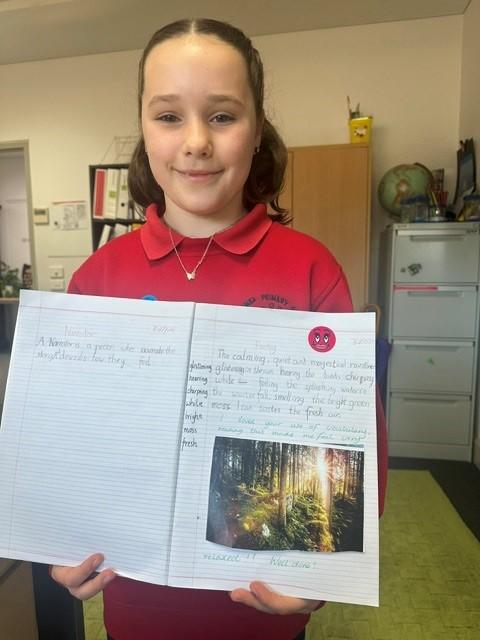 PRIMARY
Narrator
A Narrator is a person who narrates the
story/describes how they feel.
The calming, quiet and magestical rainforest
glistening in the sun hearing the birds chirping
while feeling the splashing water
the waterfall, smelling the bright green
moss I can taste the fresh air.
glistening
hearing
chirping
while
bright
moss
fresh
I love your use of vocabulary,
reading this made me feel very
relaxed!! Well done!